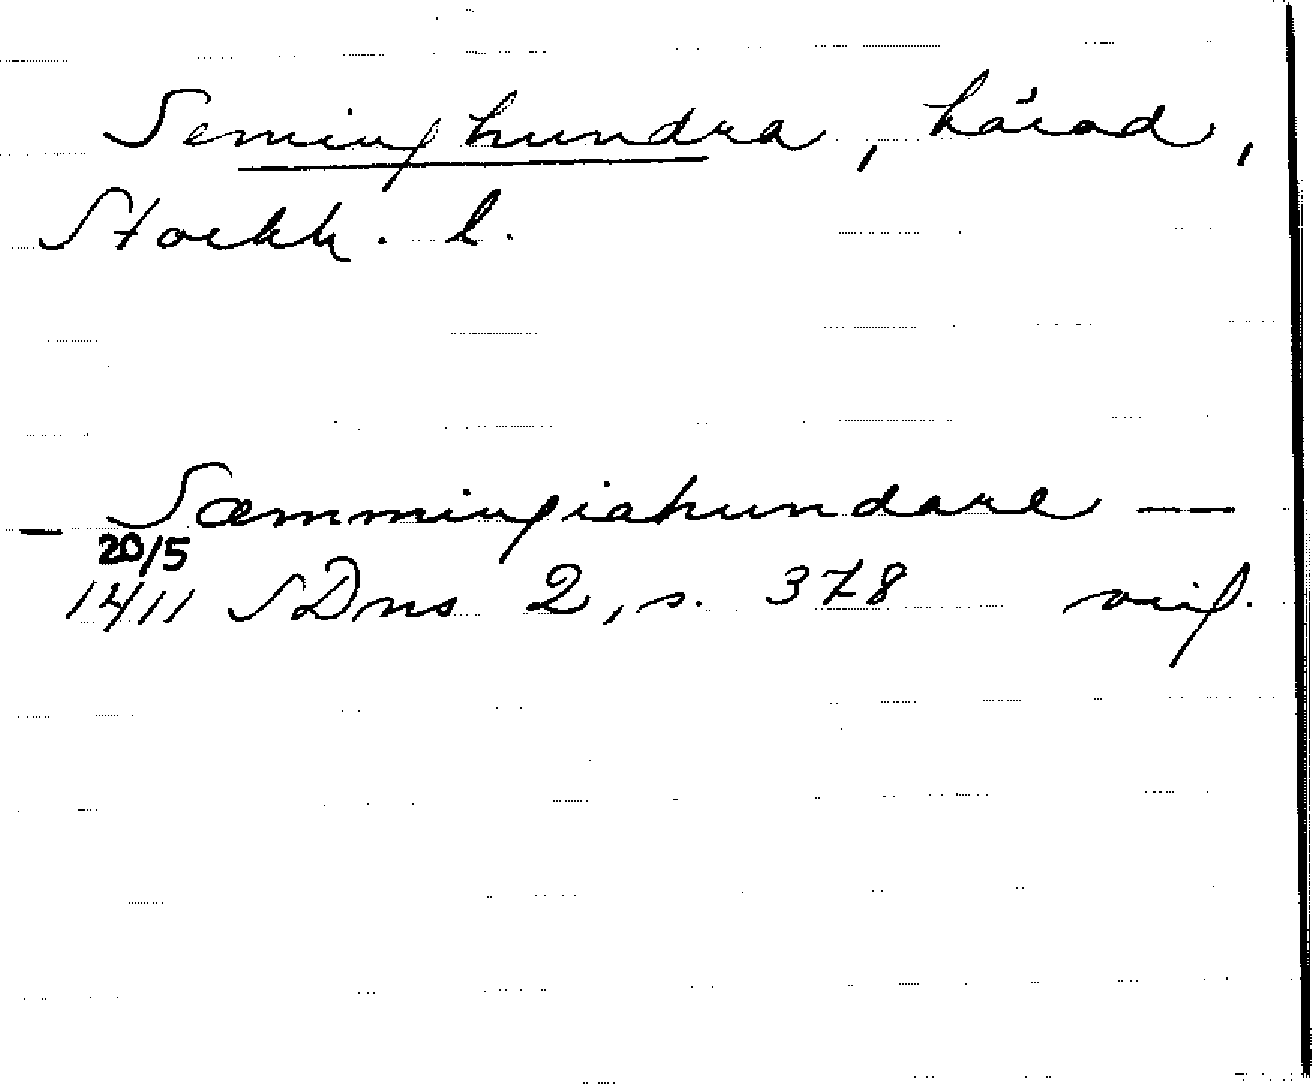 Seminghundra, härad,
Stockh. l.
— Sæmmingiahundare —
20/5
14/11 SDns 2, s. 378 orig.